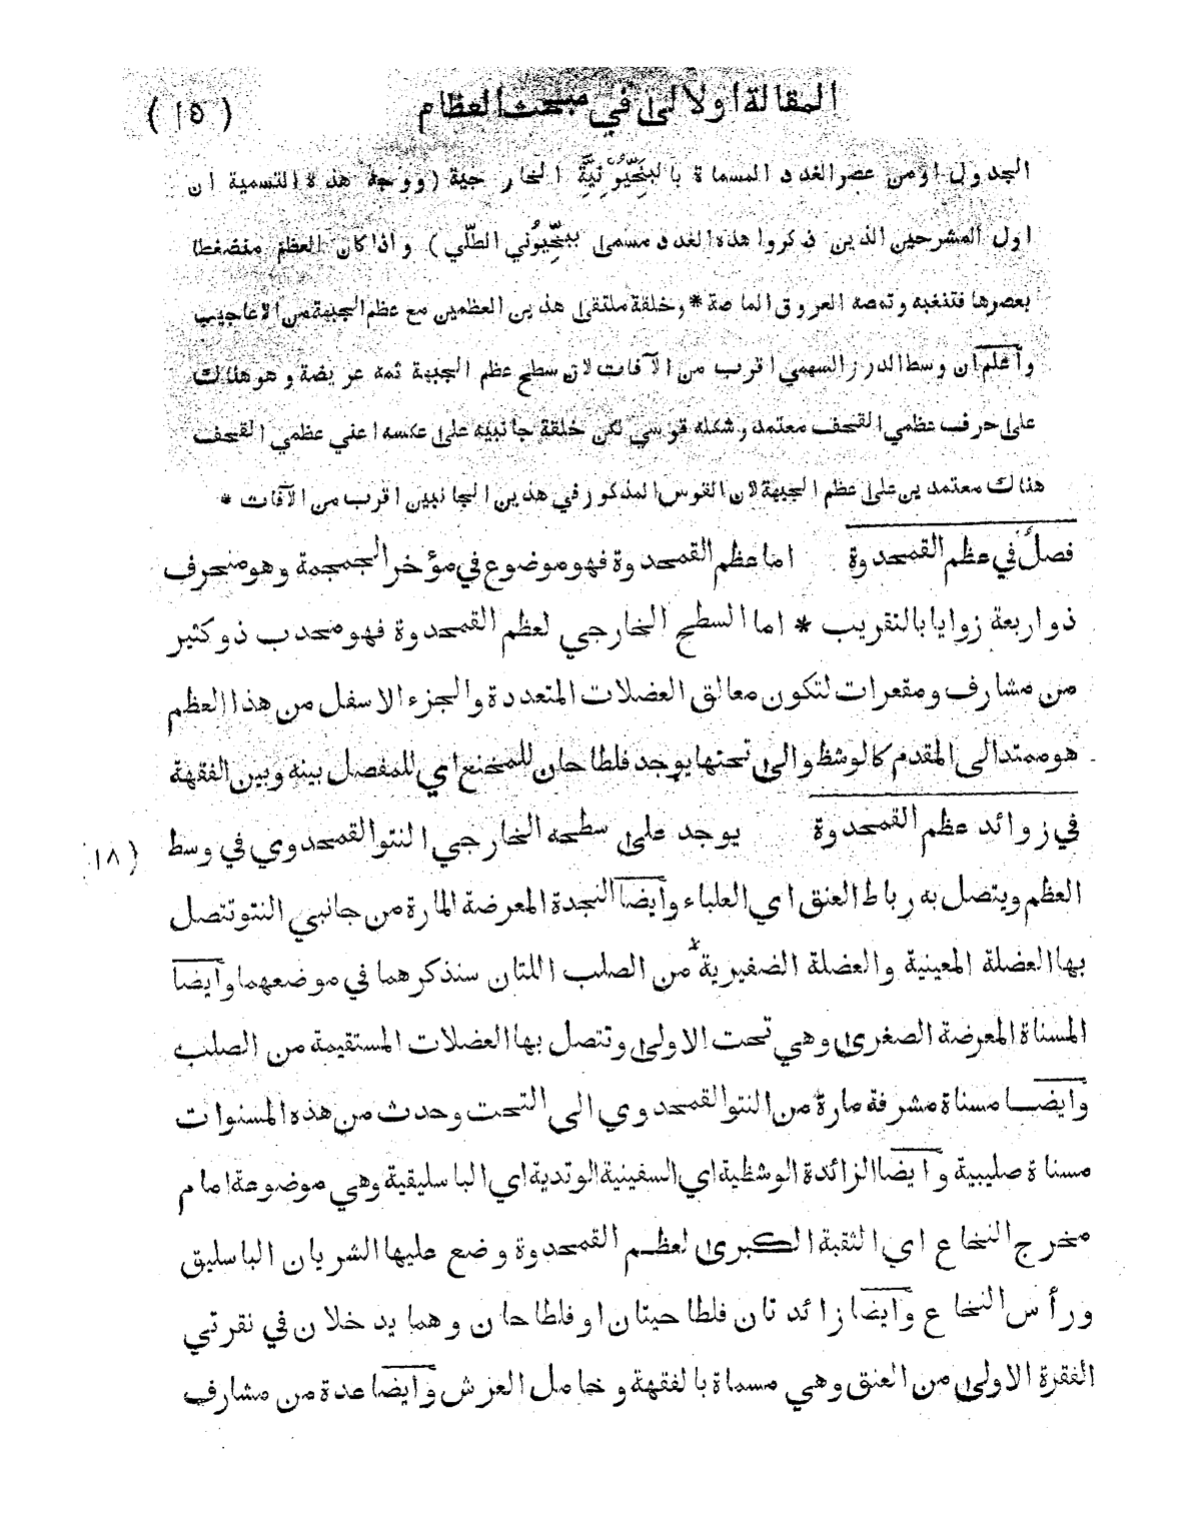 المقالة اولالى في مبحث العظام
(١٥)
الجدول اومن عصر الغدد المسماة بالبَخِّيُونِيَّةِ الخارجية (ووجة هذه التسمية ان
اول المشرحين الذين ذكروا هذه الغدد مسمى ببَخِّيُوني الطلّي) واذا كان العظم منضغطا
بعصرها فتنغبه وتمصه العروق الماصة * وخلقة ملتقى هذين العظمين مع عظم الجبهة من الاعاجيب
وآعلم آن وسط الدرز السهمي اقرب من الآفات لان سطح عظم الجبهة ثمه عريضة وهو هناك
على حرف عظمي القحف معتمد وشكله قوسي لكن خلقة جانبيه على عكسه اعني عظمي القحف
هناك معتمدين على عظم الجبهة لان القوس المذكور في هذين الجانبين اقرب من الآفات *
فصلٌ في عظم القمحدوة اما عظم القمحدوة فهو موضوع في مؤخر الجمجمة وهو منحرف
ذو اربعة زوايا بالتقريب * اما السطح الخارجي لعظم القمحدوة فهو محدب ذو كثير
من مشارف ومقعرات لتكون معالق العضلات المتعددة والجزء الاسفل من هذا العظم
هو ممتد الى المقدم كالوشظ والى تحتها يوجد فلطاحان للمخنع اي للمفصل بينه وبين الفقهة
في زوائد عظم القمحدوة يوجد على سطحه الخارجي النتو القمحدوي في وسط
(١٨)
العظم ويتصل به رباط العنق اي العلباء وآيضا النجدة المعرضة المارة من جانبي النتو تتصل
بها العضلة المعينية والعضلة الضفيرية من الصلب اللتان سنذكرهما في موضعهما وآيضا
المسناة المعرضة الصغرى وهي تحت الاولى وتتصل بها العضلات المستقيمة من الصلب
وآيضا مسناة مشرفة مارة من النتو القمحدوي الى التحت وحدث من هذه المسنوات
مسناة صليبية وآيضا الزائدة الوشظية اي السفينية الوتدية اي الباسليقية وهي موضوعة امام
مخرج النخاع اي الثقبة الكبرى لعظم القمحدوة وضع عليها الشريان الباسليق
ورأس النخاع وآيضا زائدتان فلطاحيتان او فلطاحان وهما يدخلان في نقرتي
الفقرة الاولى من العنق وهي مسماة بالفقهة وحامل العرش وآيضا عدة من مشارف